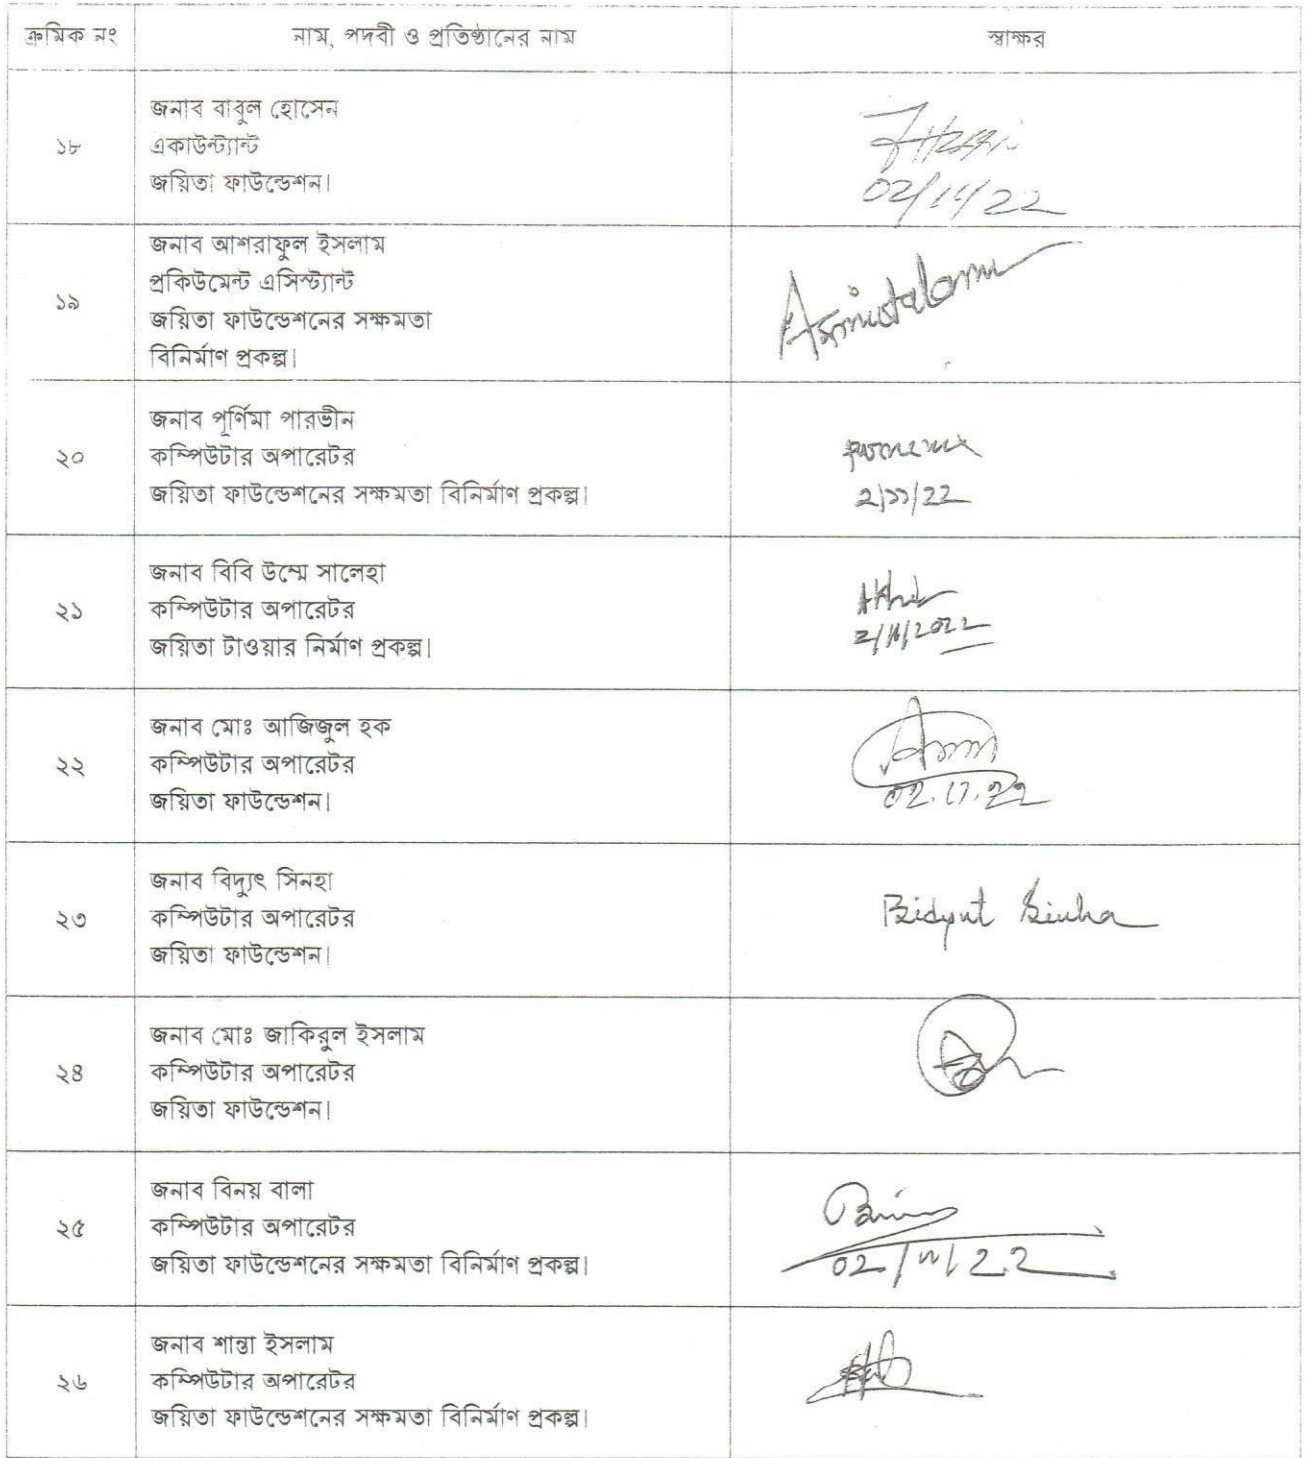 ক্রমিক নং নাম, পদবী ও প্রতিষ্ঠানের নাম স্বাক্ষর
১৮
জনাব বাবুল হোসেন
একাউন্ট্যান্ট
জয়িতা ফাউন্ডেশন।
02/11/22
১৯
জনাব আশরাফুল ইসলাম
প্রকিউমেন্ট এসিস্ট্যান্ট
জয়িতা ফাউন্ডেশনের সক্ষমতা
বিনির্মাণ প্রকল্প।
২০
জনাব পূর্ণিমা পারভীন
কম্পিউটার অপারেটর
জয়িতা ফাউন্ডেশনের সক্ষমতা বিনির্মাণ প্রকল্প।
2/১১/22
২১
জনাব বিবি উম্মে সালেহা
কম্পিউটার অপারেটর
জয়িতা টাওয়ার নির্মাণ প্রকল্প।
2/11/2022
২২
জনাব মোঃ আজিজুল হক
কম্পিউটার অপারেটর
জয়িতা ফাউন্ডেশন।
02.11.22
২৩
জনাব বিদ্যুৎ সিনহা
কম্পিউটার অপারেটর
জয়িতা ফাউন্ডেশন।
Bidyut Sinha
২৪
জনাব মোঃ জাকিরুল ইসলাম
কম্পিউটার অপারেটর
জয়িতা ফাউন্ডেশন।
২৫
জনাব বিনয় বালা
কম্পিউটার অপারেটর
জয়িতা ফাউন্ডেশনের সক্ষমতা বিনির্মাণ প্রকল্প।
02/11/22
২৬
জনাব শান্তা ইসলাম
কম্পিউটার অপারেটর
জয়িতা ফাউন্ডেশনের সক্ষমতা বিনির্মাণ প্রকল্প।